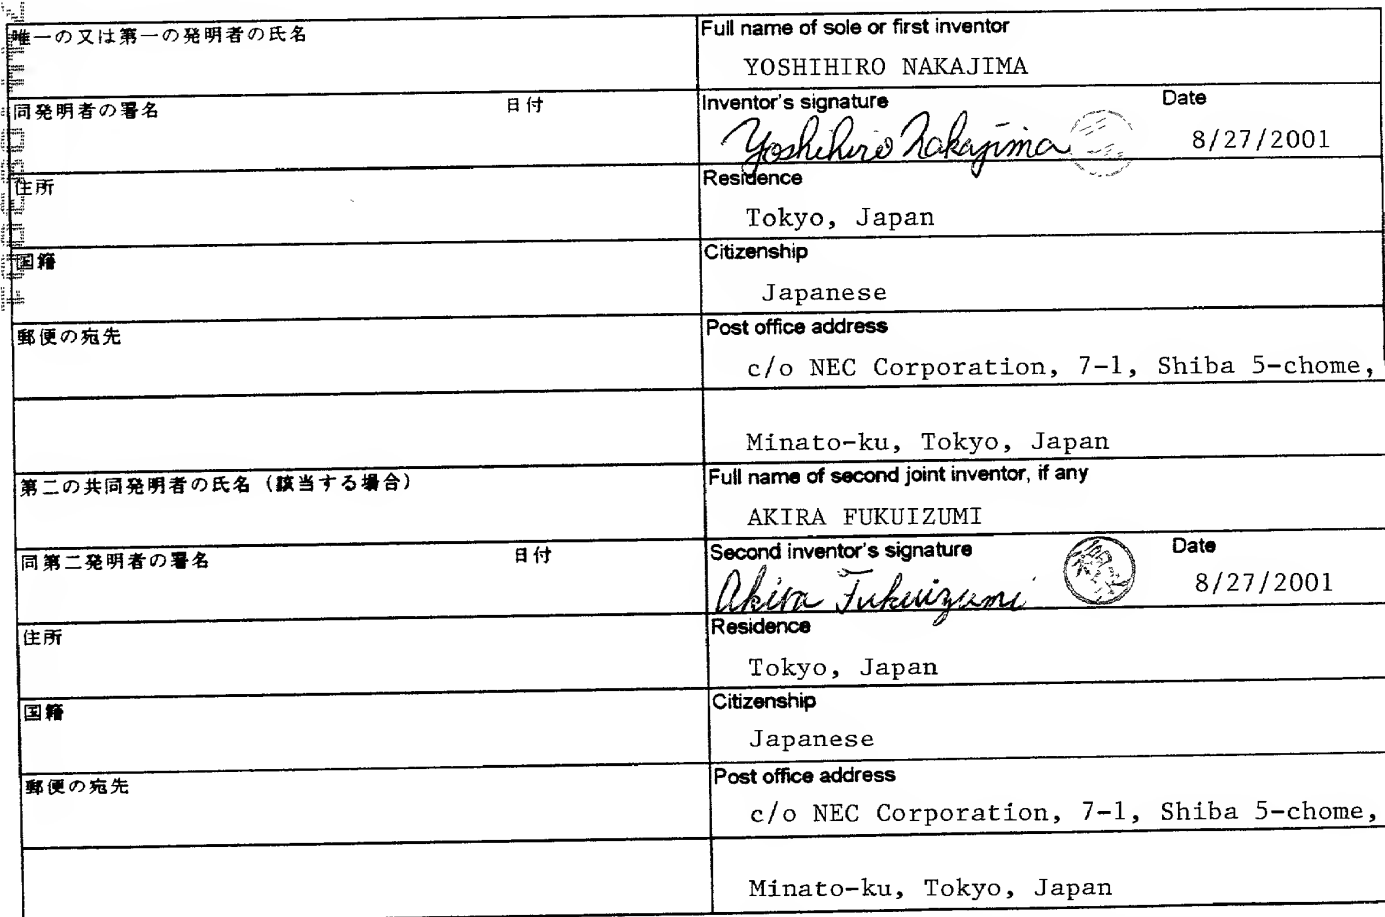 唯一の又は第一の発明者の氏名
Full name of sole or first inventor
YOSHIHIRO NAKAJIMA
同発明者の署名 日付
Inventor's signature Date
Yoshihiro Nakajima 8/27/2001
住所
Residence
Tokyo, Japan
国籍
Citizenship
Japanese
郵便の宛先
Post office address
c/o NEC Corporation, 7-1, Shiba 5-chome,
Minato-ku, Tokyo, Japan
第二の共同発明者の氏名（該当する場合）
Full name of second joint inventor, if any
AKIRA FUKUIZUMI
同第二発明者の署名 日付
Second inventor's signature Date
Akira Fukuizumi 8/27/2001
住所
Residence
Tokyo, Japan
国籍
Citizenship
Japanese
郵便の宛先
Post office address
c/o NEC Corporation, 7-1, Shiba 5-chome,
Minato-ku, Tokyo, Japan